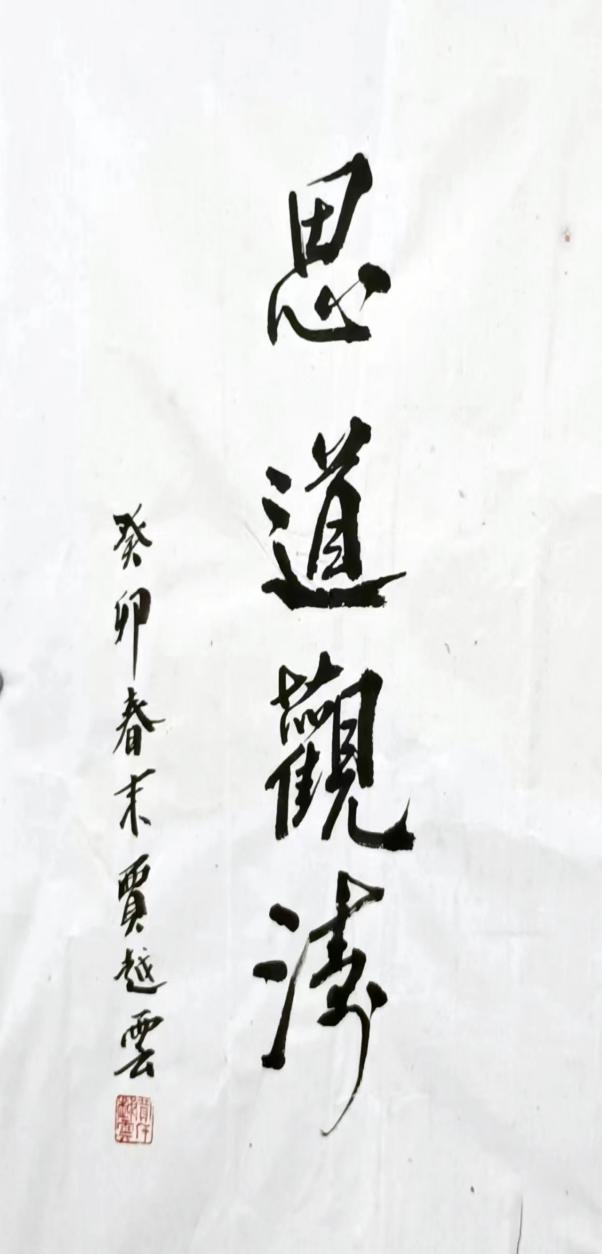 思道觀濤
癸卯春末賈越雲